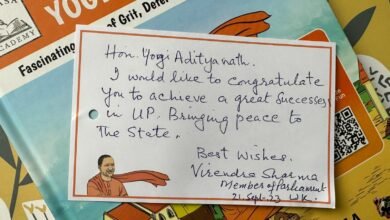 ASA
ACADEMY
YOG
Fascinating
of Grit, Deter
Hon. Yogi Adityanath.
I would like to congratulate
you to achieve a great Successes
in UP. Bringing peace to
The State.
Best Wishes.
Virendra Sharma
Member of Parliament
21 Sept. 23 U.K.